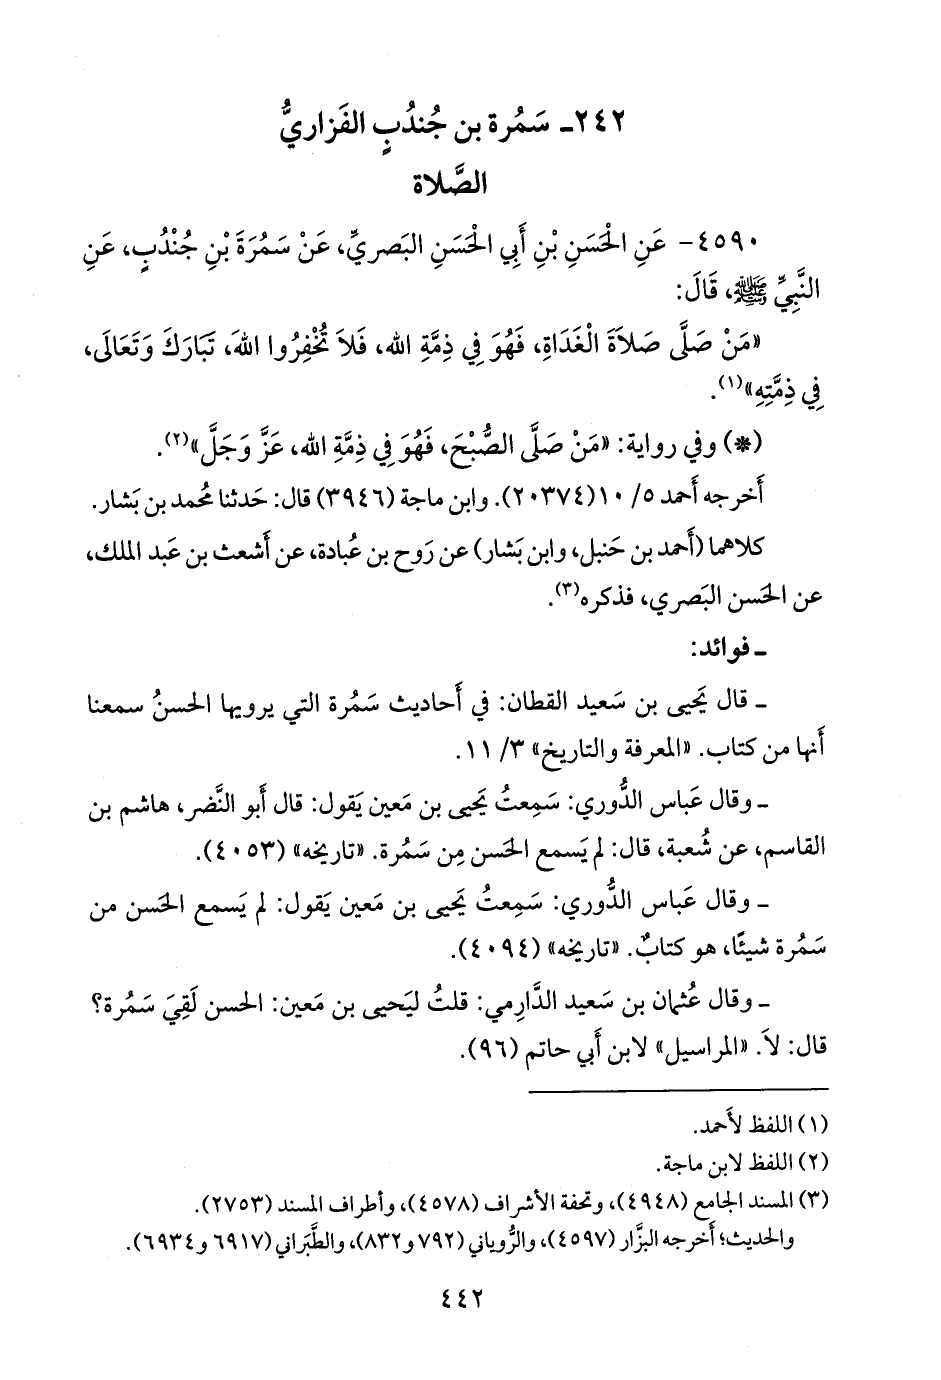 ٢٤٢ـ سَمُرة بن جُندُبٍ الفَزاريُّ
الصَّلاة
٤٥٩٠- عَنِ الْحَسَنِ بْنِ أَبِي الْحَسَنِ البَصريِّ، عَنْ سَمُرَةَ بْنِ جُنْدُبٍ، عَنِ
النَّبِيِّ ﷺ، قَالَ:
«مَنْ صَلَّى صَلاَةَ الْغَدَاةِ، فَهُوَ فِي ذِمَّةِ الله، فَلاَ تُخْفِرُوا اللهَ، تَبَارَكَ وَتَعَالَى،
فِي ذِمَّتِهِ»(١).
(*) وفي رواية: «مَنْ صَلَّى الصُّبْحَ، فَهُوَ فِي ذِمَّةِ الله، عَزَّ وَجَلَّ»(٢).
أَخرجه أَحمد ٥/ ١٠(٢٠٣٧٤). وابن ماجة (٣٩٤٦) قال: حَدثنا مُحمد بن بَشار.
كلاهما (أَحمد بن حَنبل، وابن بَشار) عن رَوح بن عُبادة، عن أَشعث بن عَبد الملك،
عن الحَسن البَصري، فذكره(٣).
ـ فوائد:
ـ قال يَحيى بن سَعيد القطان: في أَحاديث سَمُرة التي يرويها الحسنُ سمعنا
أَنها من كتاب. «المعرفة والتاريخ» ٣/ ١١.
ـ وقال عَباس الدُّوري: سَمِعتُ يَحيى بن مَعين يَقول: قال أَبو النَّضر، هاشم بن
القاسم، عن شُعبة، قال: لم يَسمع الحَسن مِن سَمُرة. «تاريخه» (٤٠٥٣).
ـ وقال عَباس الدُّوري: سَمِعتُ يَحيى بن مَعين يَقول: لم يَسمع الحَسن من
سَمُرة شيئًا، هو كتابٌ. «تاريخه» (٤٠٩٤).
ـ وقال عُثمان بن سَعيد الدَّارِمي: قلتُ ليَحيى بن مَعين: الحسن لَقِيَ سَمُرة؟
قال: لاَ. «المراسيل» لابن أَبي حاتم (٩٦).
(١) اللفظ لأَحمد.
(٢) اللفظ لابن ماجة.
(٣) المسند الجامع (٤٩٤٨)، وتحفة الأشراف (٤٥٧٨)، وأطراف المسند (٢٧٥٣).
والحديث؛ أَخرجه البزَّار (٤٥٩٧)، والرُّوياني (٧٩٢ و٨٣٢)، والطَّبَراني (٦٩١٧ و٦٩٣٤).
٤٤٢